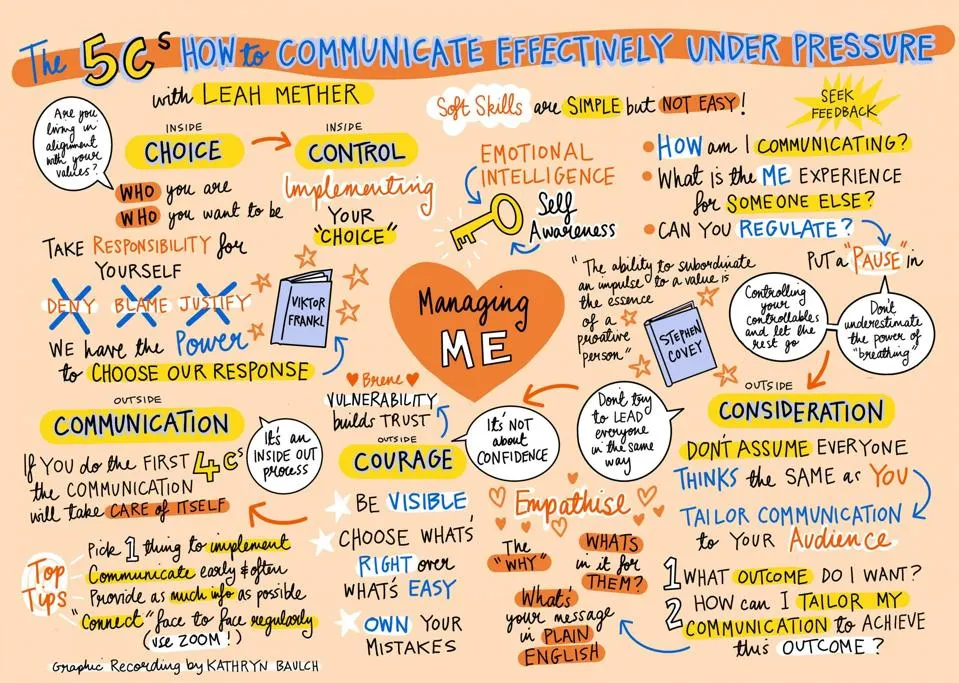 The 5Cs HOW to COMMUNICATE EFFECTIVELY UNDER PRESSURE
with LEAH METHER
Soft Skills are SIMPLE but NOT EASY!
SEEK
FEEDBACK
Are you
living in
alignment
with your
values?
INSIDE
CHOICE
WHO you are
WHO you want to be
TAKE RESPONSIBILITY for
YOURSELF
DENY BLAME JUSTIFY
WE have the Power
to CHOOSE OUR RESPONSE
INSIDE
CONTROL
Implementing
YOUR
"CHOICE"
VIKTOR
FRANKL
EMOTIONAL
INTELLIGENCE
Self
Awareness
HOW am I COMMUNICATING?
What is the ME EXPERIENCE
for SOMEONE ELSE?
CAN YOU REGULATE?
PUT a "PAUSE" in
Managing
ME
"The ability to subordinate
an impulse to a value is
the essence
of a
proative
person"
STEPHEN
COVEY
Controlling
your
controllables
and let the
rest go
Don't
underestimate
the power of
"breathing"
OUTSIDE
CONSIDERATION
DON'T ASSUME EVERYONE
THINKS the SAME as YOU
TAILOR COMMUNICATION
to YOUR Audience
1 WHAT OUTCOME DO I WANT?
2 HOW can I TAILOR MY
COMMUNICATION to ACHIEVE
this OUTCOME?
Don't try
to LEAD
everyone
in the same
way
Empathise
The
"WHY"
WHATS
in it for
THEM?
What's
your message
in PLAIN
ENGLISH
Brene
VULNERABILITY
builds TRUST
OUTSIDE
COURAGE
It's NOT
about
CONFIDENCE
BE VISIBLE
CHOOSE WHAT'S
RIGHT over
WHAT'S EASY
OWN YOUR
MISTAKES
OUTSIDE
COMMUNICATION
It's an
INSIDE OUT
process
If YOU do the FIRST 4Cs
the COMMUNICATION
will take CARE of ITSELF
Top
Tips
Pick 1 thing to implement
Communicate early & often
Provide as much info as possible
"Connect" face to face regularly
(use ZOOM!)
Graphic Recording by KATHRYN BAULCH